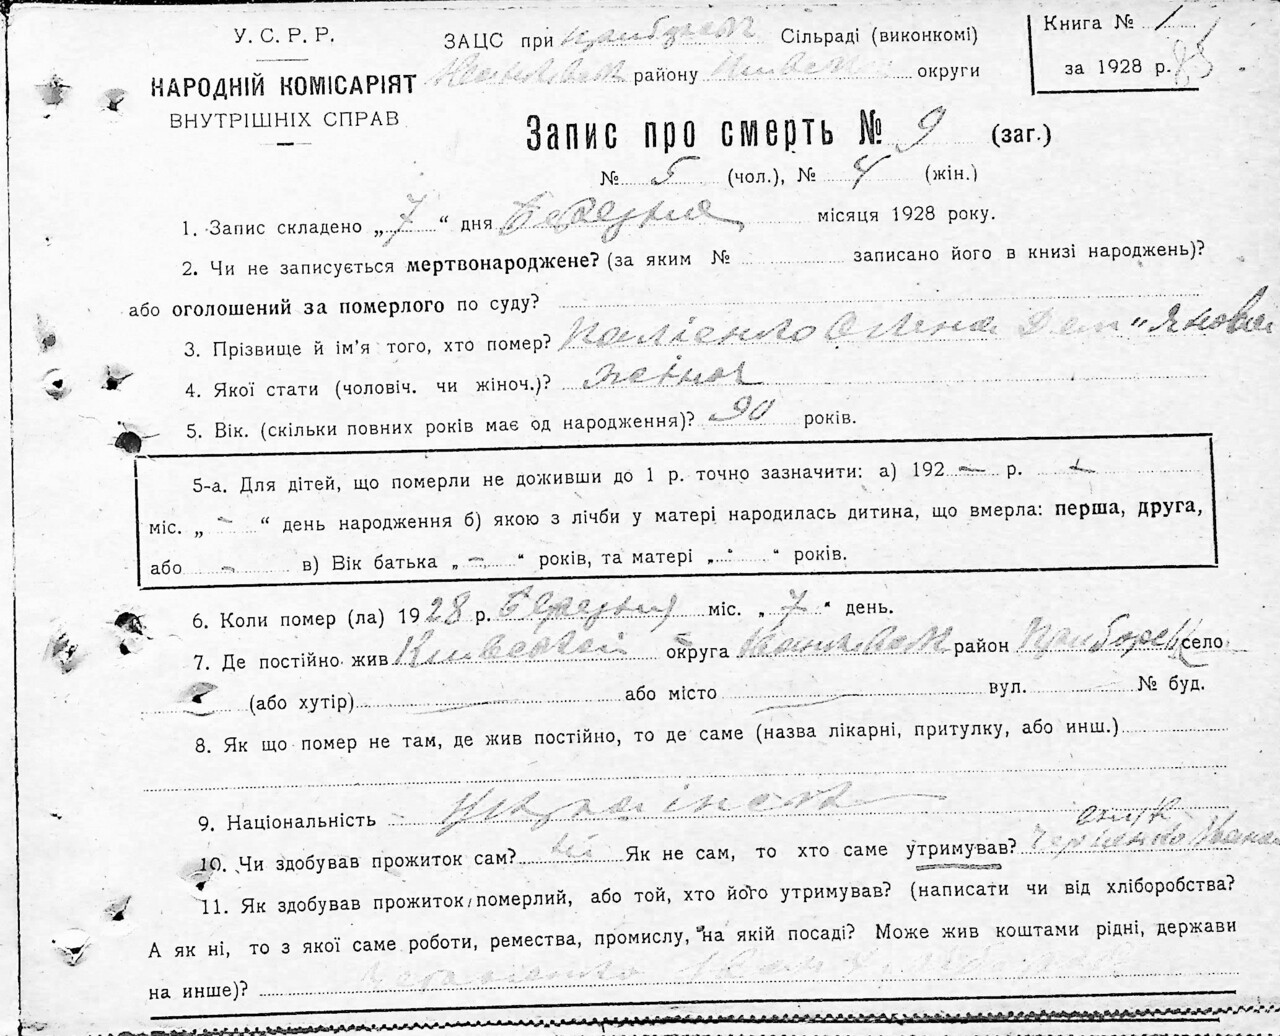 У. С. Р. Р.
НАРОДНІЙ КОМІСАРІЯТ
ВНУТРІШНІХ СПРАВ
ЗАЦС при Сільраді (виконкомі)
району округи
Книга № 1
за 1928 р. 85
Запис про смерть № 9 (заг.)
№ 5 (чол.), № 4 (жін.)
1. Запис складено „7“ дня Березня місяця 1928 року.
2. Чи не записується мертвонароджене? (за яким № записано його в книзі народжень)?
або оголошений за померлого по суду?
3. Прізвище й ім'я того, хто помер? Дем"янова
4. Якої стати (чоловіч. чи жіноч.)? жіноч
5. Вік. (скільки повних років має од народження)? 90 років.
5-а. Для дітей, що померли не доживши до 1 р. точно зазначити: а) 192 — р. —
міс. „ — “ день народження б) якою з лічби у матері народилась дитина, що вмерла: перша, друга,
або — в) Вік батька „ — “ років, та матері „ “ років.
6. Коли помер (ла) 1928 р. Березня міс. „7“ день.
7. Де постійно жив Київській округа район село
(або хутір) — або місто — вул. — № буд.
8. Як що помер не там, де жив постійно, то де саме (назва лікарні, притулку, або инш.)
9. Національність
10. Чи здобував прожиток сам? Ні Як не сам, то хто саме утримував?
11. Як здобував прожиток померлий, або той, хто його утримував? (написати чи від хліборобства?
А як ні, то з якої саме роботи, ремества, промислу, на якій посаді? Може жив коштами рідні, держави
на инше)?